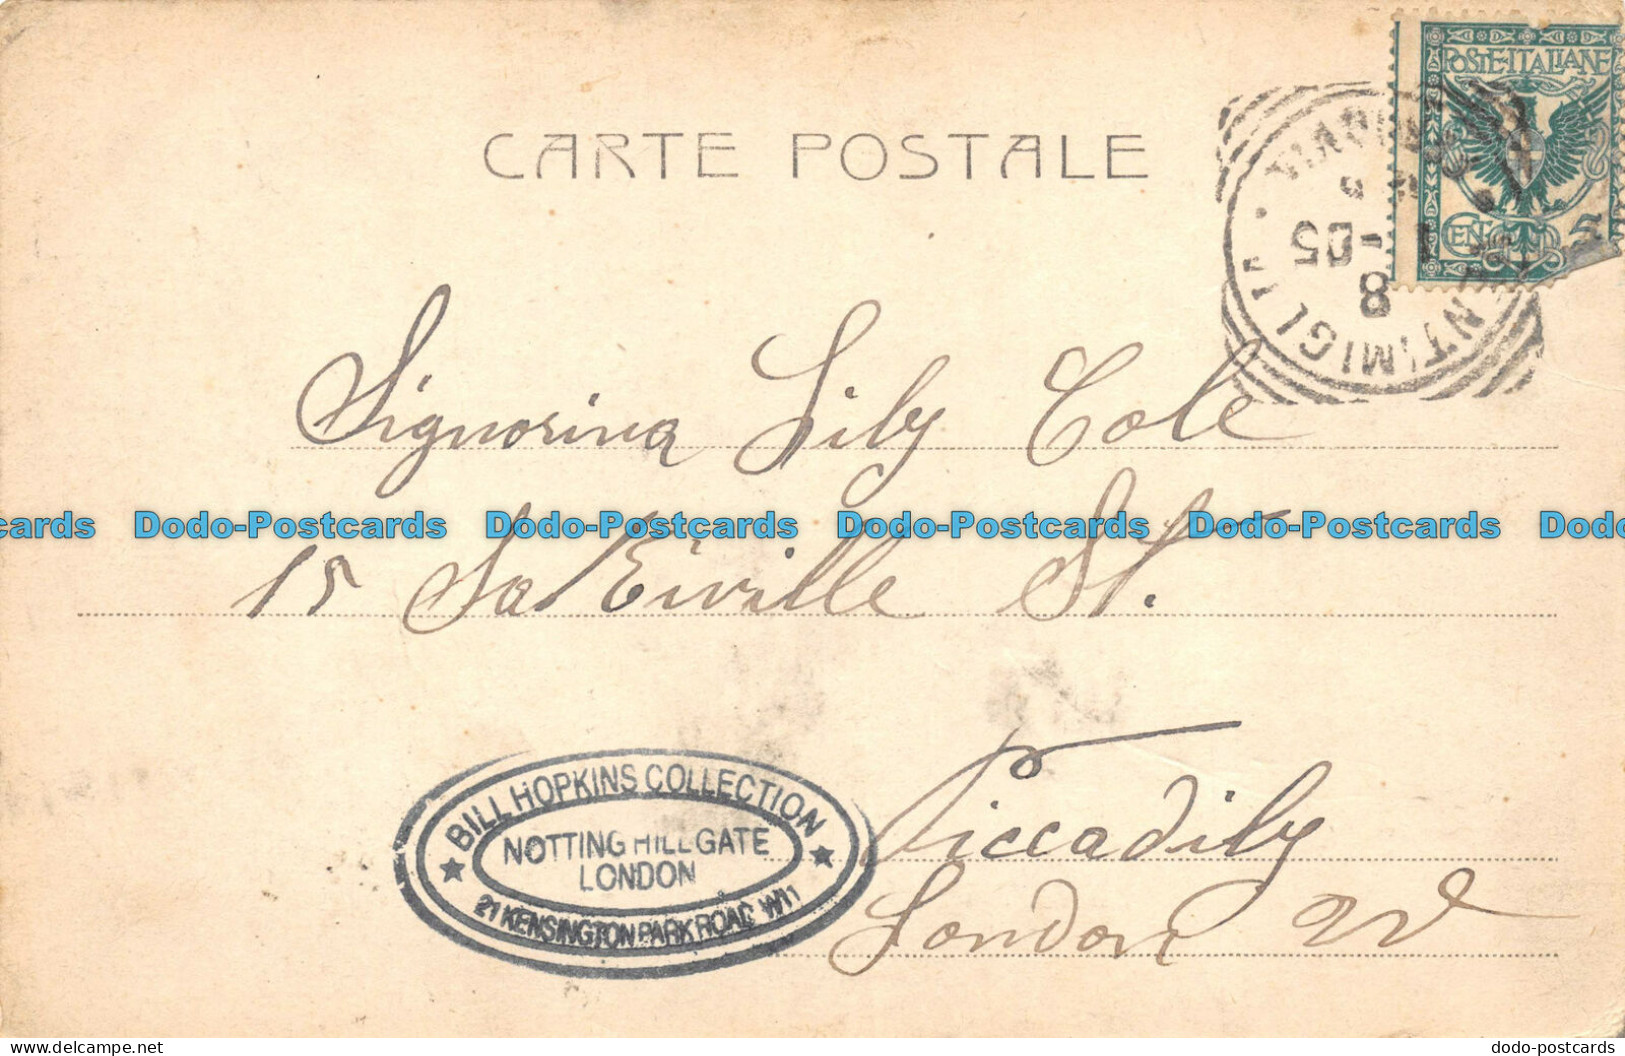 POSTE·ITALIANE
CENT. 5
CARTE POSTALE
VENTIMIGLIA
8
1-05
Signorina Lily Cole
cards Dodo-Postcards Dodo-Postcards Dodo-Postcards Dodo-Postcards Dodo
15 Sakeiville St.
Piccadily
London W
BILL HOPKINS COLLECTION
NOTTING HILL GATE
LONDON
21 KENSINGTON PARK ROAD W11
Dodo-Postcards DELCAMPE.NET
dodo-postcards